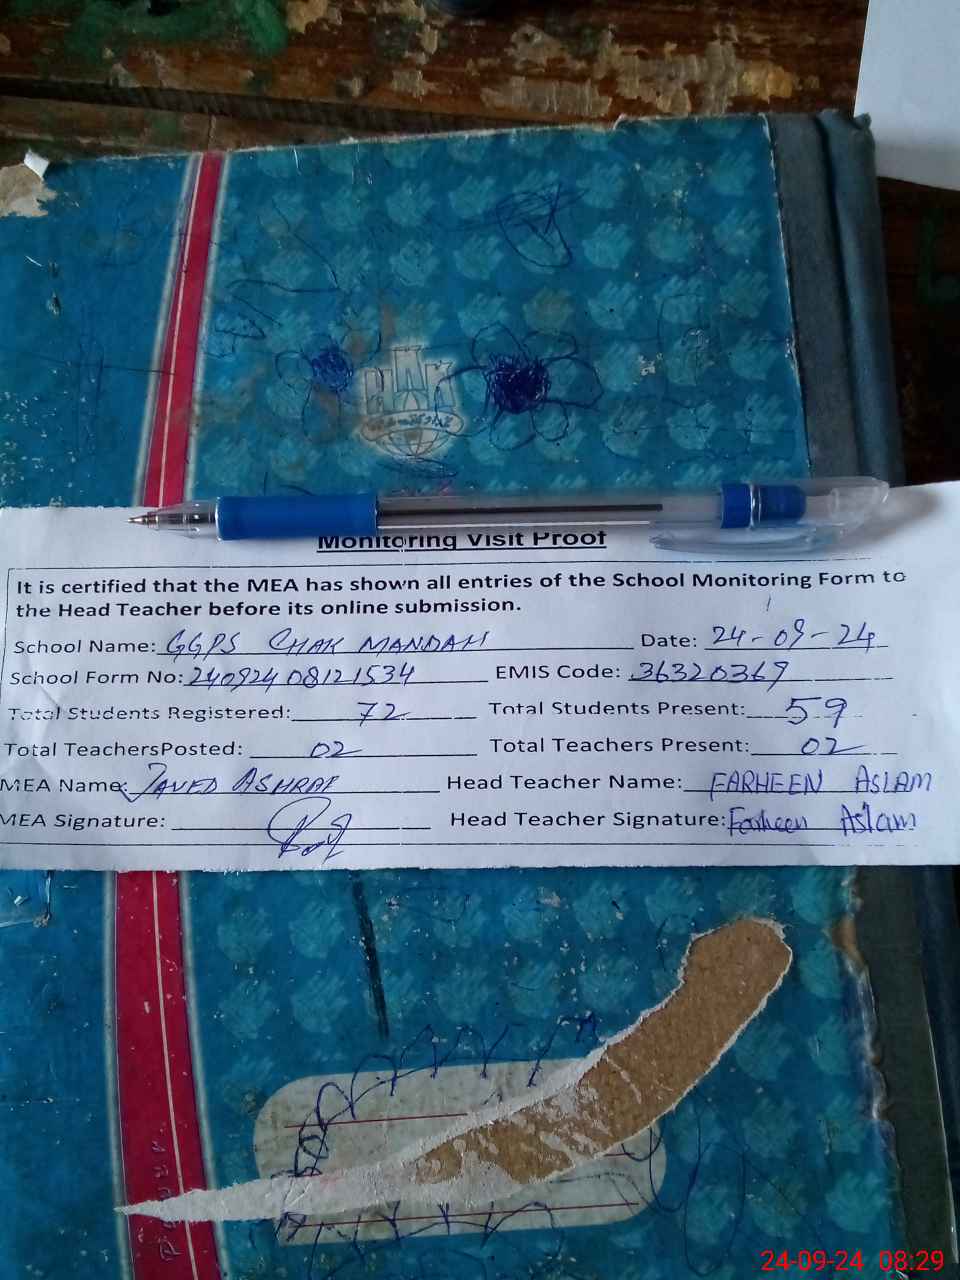 Monitoring Visit Proof
It is certified that the MEA has shown all entries of the School Monitoring Form to
the Head Teacher before its online submission.
School Name: GGPS CHAK MANDAH Date: 24-09-24
School Form No: 24092408121534 EMIS Code: 36320369
Total Students Registered: 72 Total Students Present: 59
Total TeachersPosted: 02 Total Teachers Present: 02
MEA Name: JAVED ASHRAF Head Teacher Name: FARHEEN ASLAM
MEA Signature: Head Teacher Signature: Farheen Aslam
24-09-24 08:29